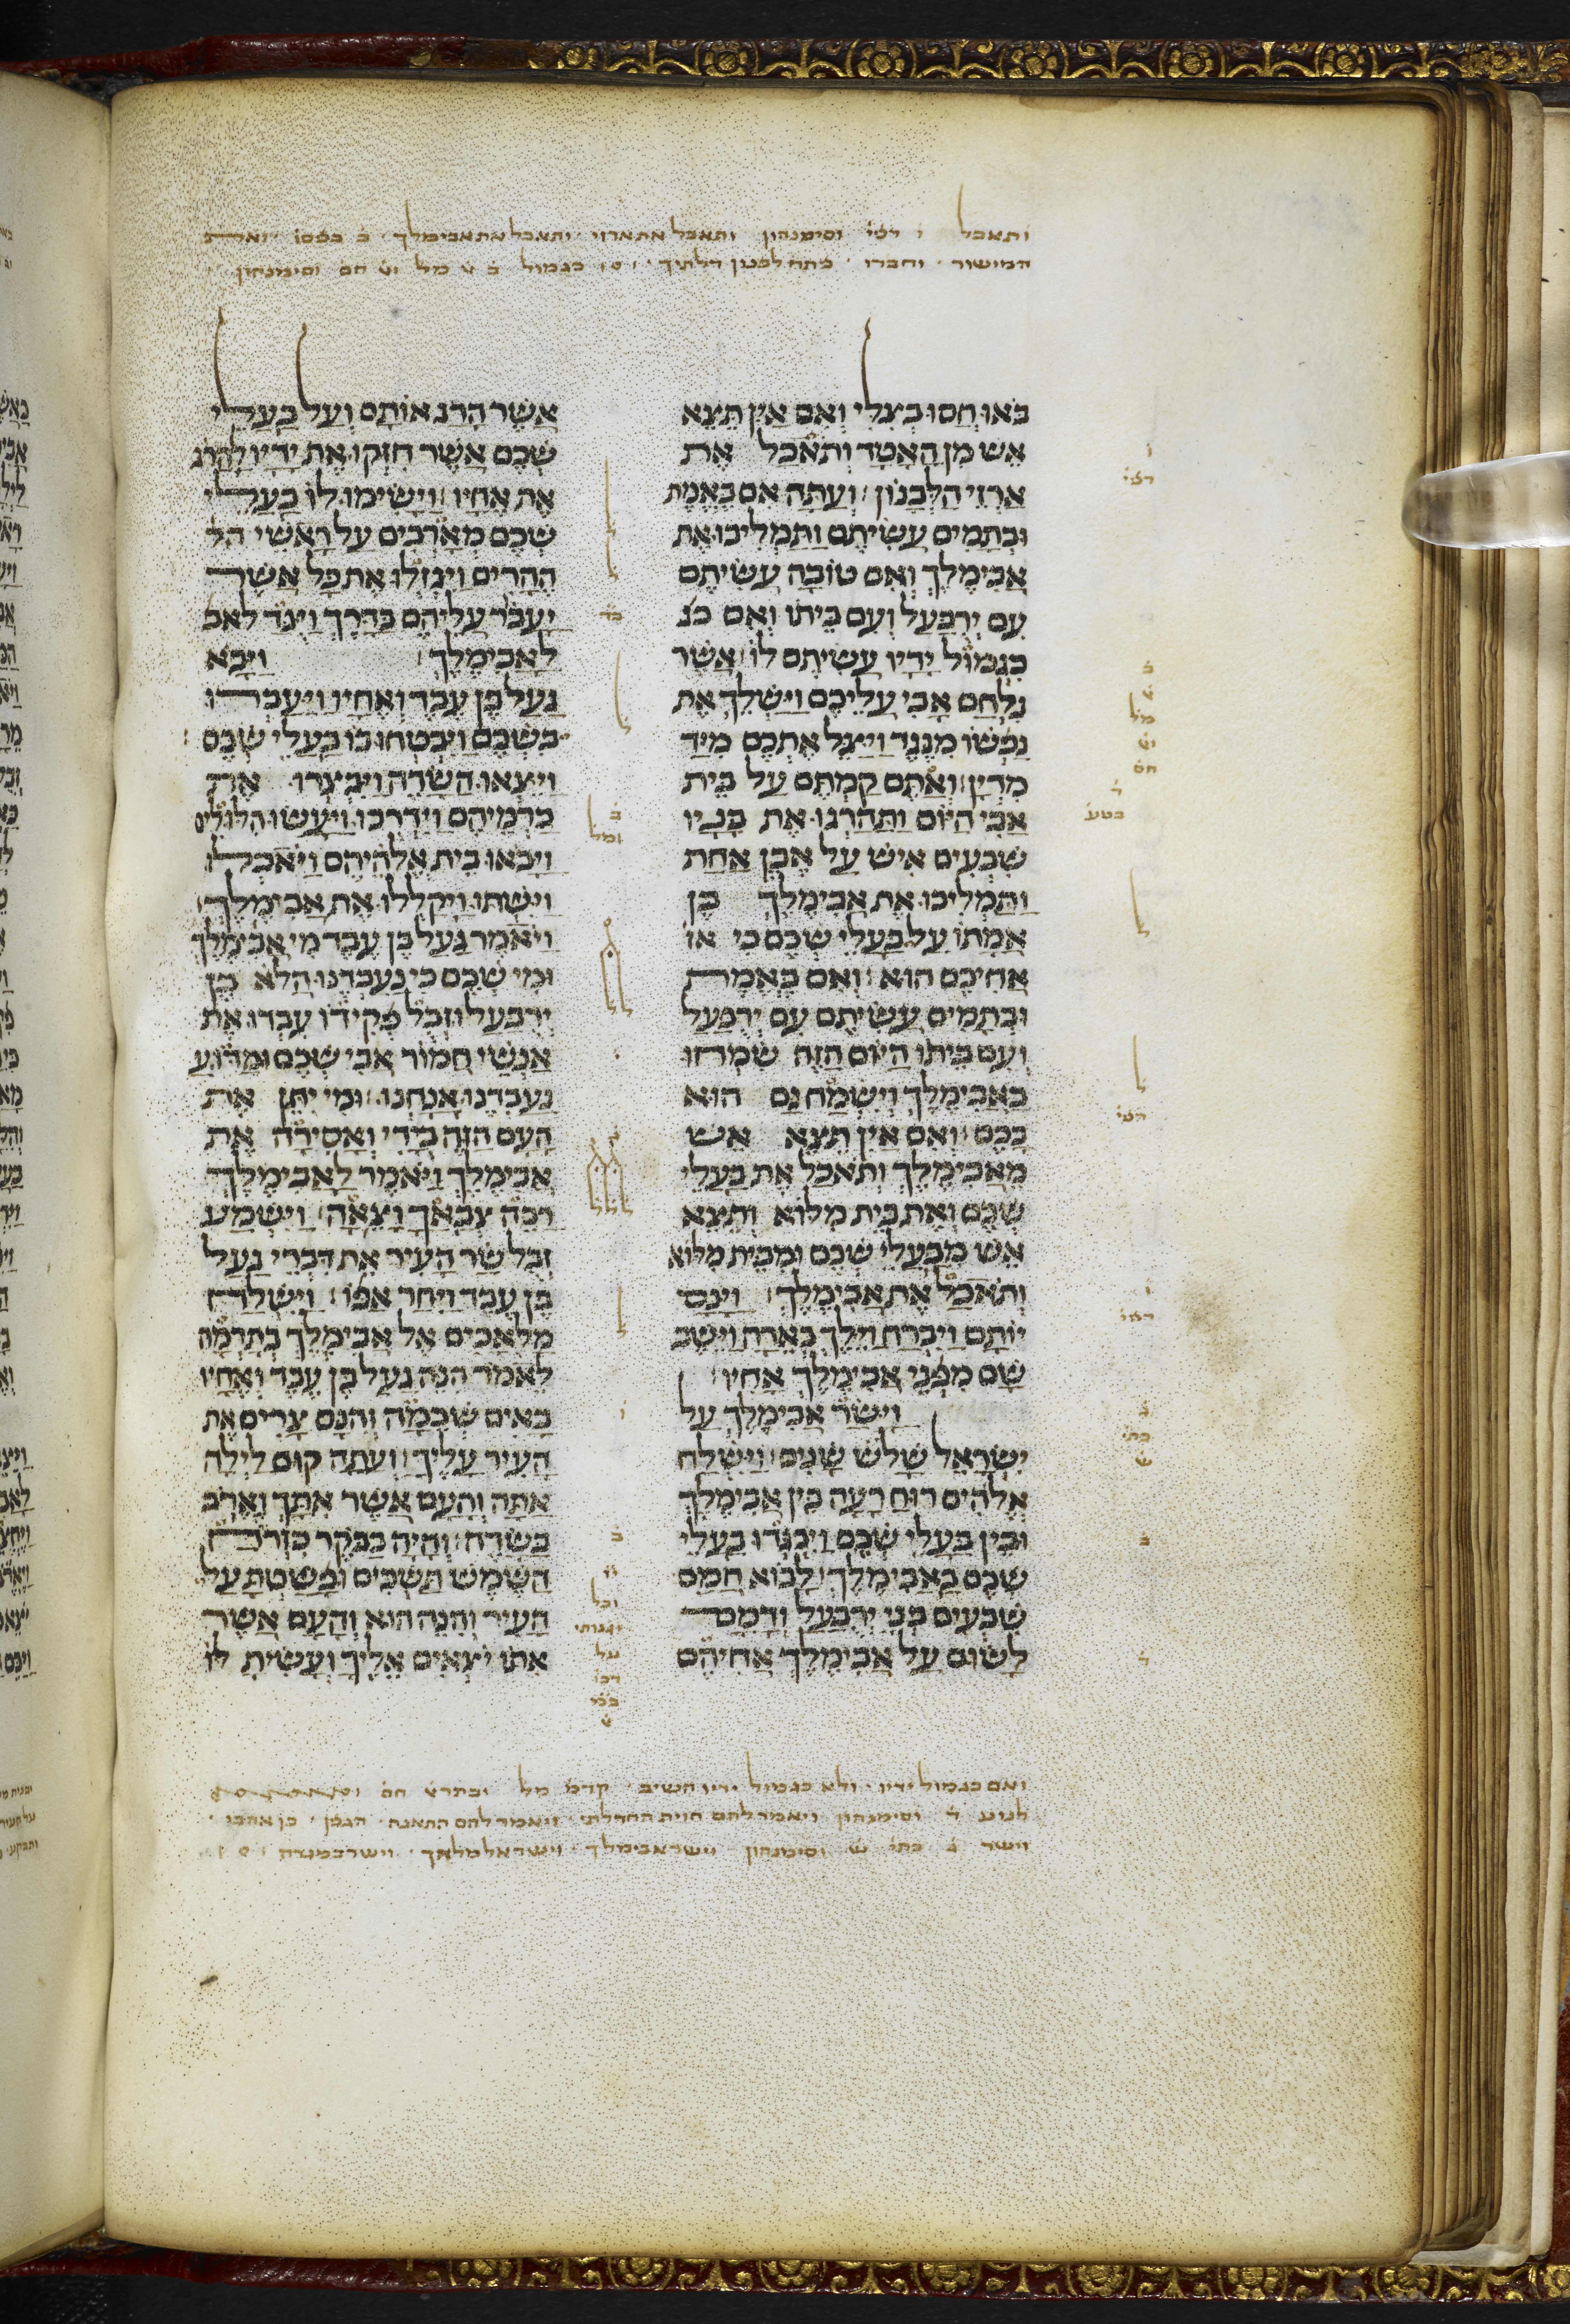 ותאכל ו רפי וסימנהון ותאכל את ארזי ותאכל את אבימלך ב בפסו
המישור וחברו פתח לבנון דלתיך כגמול ב מל חס וסימנהון
באו חסו בצלי ואם אין תצא
אש מן האטד ותאכל את
ארזי הלבנון ועתה אם באמת
ובתמים עשיתם ותמליכו את
אבימלך ואם טובה עשיתם
עם ירבעל ועם ביתו ואם כג
כגמול ידיו עשיתם לו אשר
נלחם אבי עליכם וישלך את
נפשו מנגד ויצל אתכם מיד
מדין ואתם קמתם על בית
אבי היום ותהרגו את בניו
שבעים איש על אבן אחת
ותמליכו את אבימלך בן
אמתו על בעלי שכם כי או
אחיכם הוא ואם באמת
ובתמים עשיתם עם ירבעל
ועם ביתו היום הזה שמחו
באבימלך וישמח גם הוא
בכם ואם אין תצא אש
מאבימלך ותאכל את בעלי
שכם ואת בית מלוא ותצא
אש מבעלי שכם ומבית מלוא
ותאכל את אבימלך וינס
יותם ויברח וילך בארה וישב
שם מפני אבימלך אחיו
וישר אבימלך על
ישראל שלש שנים וישלח
אלהים רוח רעה בין אבימלך
ובין בעלי שכם ויבגדו בעלי
שכם באבימלך לבוא חמס
שבעים בני ירבעל ודמם
לשום על אבימלך אחיהם
אשר הרג אותם ועל בעלי
שכם אשר חזקו את ידיו להרג
את אחיו וישימו לו בעלי
שכם מארבים על ראשי הה
ההרים ויגזלו את כל אשר
יעבר עליהם בדרך ויגד לאב
לאבימלך ויבא
געל בן עבד ואחיו ויעברו
בשכם ויבטחו בו בעלי שכם
ויצאו השדה ויבצרו את
כרמיהם וידרכו ויעשו הלולים
ויבאו בית אלהיהם ויאכלו
וישתו ויקללו את אבימלך
ויאמר געל בן עבד מי אבימלך
ומי שכם כי נעבדנו הלא בן
ירבעל וזבל פקידו עבדו את
אנשי חמור אבי שכם ומדוע
נעבדנו אנחנו ומי יתן את
העם הזה בידי ואסירה את
אבימלך ויאמר לאבימלך
רבה צבאך וצאה וישמע
זבל שר העיר את דברי געל
בן עבד ויחר אפו וישלח
מלאכים אל אבימלך בתרמה
לאמר הנה געל בן עבד ואחיו
באים שכמה והנם צרים את
העיר עליך ועתה קום לילה
אתה והעם אשר אתך וארב
בשדה והיה בבקר כזרח
השמש תשכים ופשטת על
העיר והנה הוא והעם אשר
אתו יצאים אליך ועשית לו
ואם כגמול ידיו ולא כגמול ידיו השיב קדמ מל ובתר חס
וסימנהון ויאמר להם התאנה הגפן
וישר ב כתי ש וסימנהון וישר אבימלך וישר אל מלאך